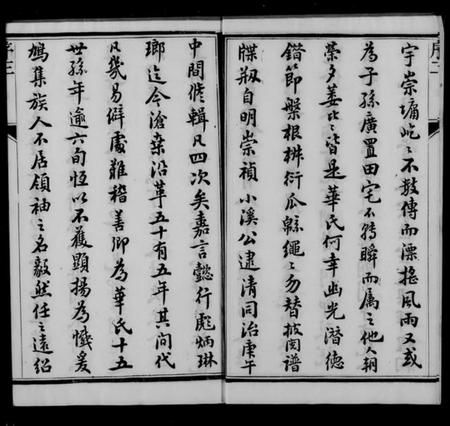 序二
宇崇墉屹〻不數傳而漂搖風雨又或
為子孫廣置田宅不轉瞬而屬之他人朝
榮夕萎比〻皆是華氏何幸幽光潛德
錯節槃根椒衍瓜緜繩〻勿替披閱譜
牒剏自明崇禎小溪公逮清同治庚午
中間修輯凡四次矣嘉言懿行彪炳琳
瑯迄今滄桑沿革五十有五年其間代
凡幾易僻處難稽善卿為華氏十五
世孫年逾六旬恆以不獲顯揚為懺爰
鳩集族人不居領袖之名毅然任之遠紹
序三